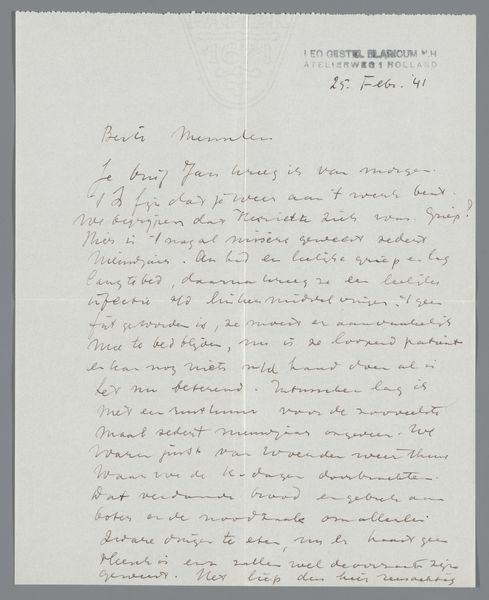 LEO GESTEL BLARICUM N H
ATELIERWEG 1 HOLLAND
25. Febr. '41
Beste Menschen
Je brief Jan kreeg ik van morgen.
't Is fijn dat je weer aan 't werk bent.
We begrijpen dat Henriette ziek was. Griep?
Hier is 't nogal misère geweest sedert
Nieuwjaar. An had een leelijke griep en lag
lang te bed, daarna kreeg ze een leelijke
infectie linker middelvinger. 't geen
fijt geworden is, ze moest er aanvankelijk
mee te bed blijven, nu is ze loopend patiënt
en kan nog niets m/d hand doen al is
het nu beterend. Intusschen lag ik
met een voor de zooveelste
maal sedert nieuwjaar ongeveer. We
waren juist van Woerden weer thuis
waar we de K-dagen doorbrachten.
Dat verdomde brood en gebrek aan
boter en de noodzaak om allerlei
zware dingen te eten, nu er haast geen
vleesch is enz zullen wel de oorzaak zijn
geweest. Het liep den heer